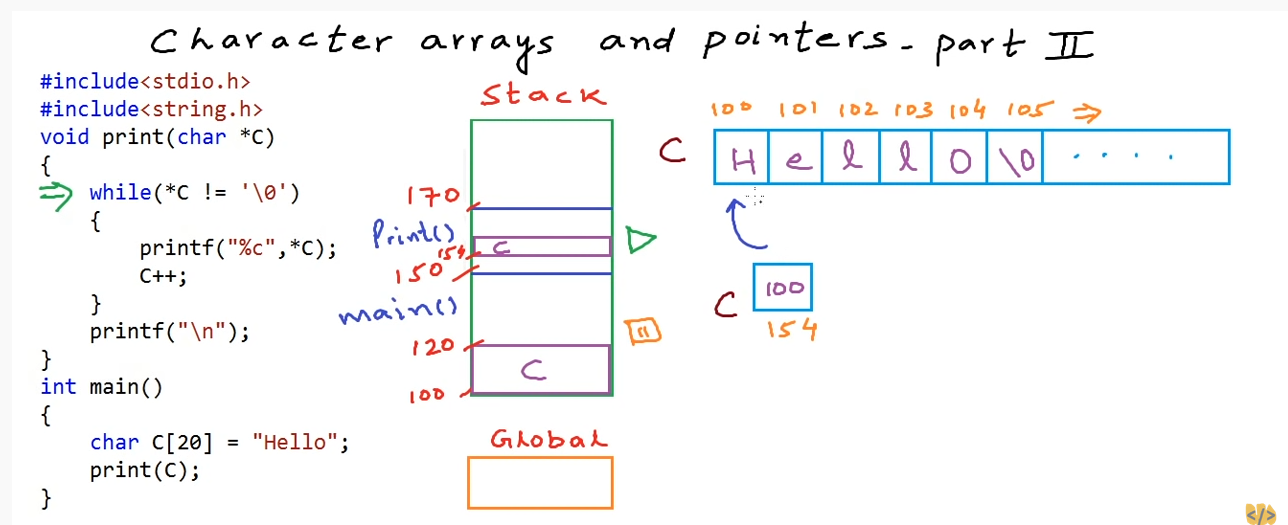 Character arrays and pointers - part II
#include<stdio.h>
#include<string.h>
void print(char *C)
{
while(*C != '\0')
{
printf("%c",*C);
C++;
}
printf("\n");
}
int main()
{
char C[20] = "Hello";
print(C);
}
Stack
170
Print()
154
C
150
main()
120
C
100
Global
100 101 102 103 104 105 ⇒
C H e l l o \0 . . . .
C 100
154
</>